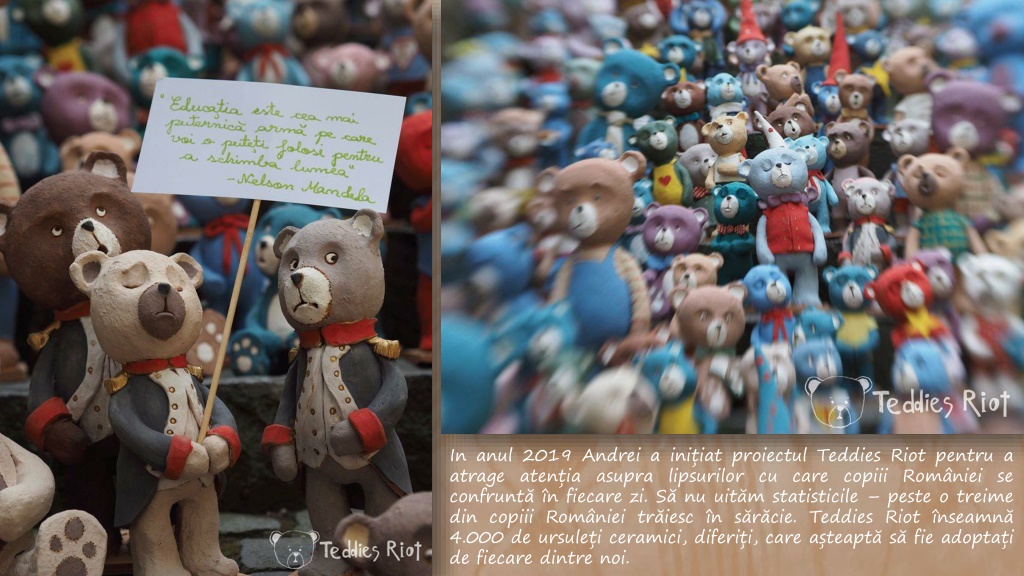 "Educația este cea mai
puternică armă pe care
voi o puteți folosi pentru
a schimba lumea"
-Nelson Mandela
Teddies Riot
Teddies Riot
In anul 2019 Andrei a inițiat proiectul Teddies Riot pentru a
atrage atenția asupra lipsurilor cu care copiii României se
confruntă în fiecare zi. Să nu uităm statisticile – peste o treime
din copiii României trăiesc în sărăcie. Teddies Riot înseamnă
4.000 de ursuleți ceramici, diferiți, care așteaptă să fie adoptați
de fiecare dintre noi.